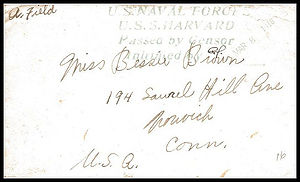 A. Field
U.S. NAVAL FORCES
U.S.S. HARVARD
Passed by Censor
Miss Bessie Brown
194 Laurel Hill Ave
Norwich
Conn.
U.S.A.
16